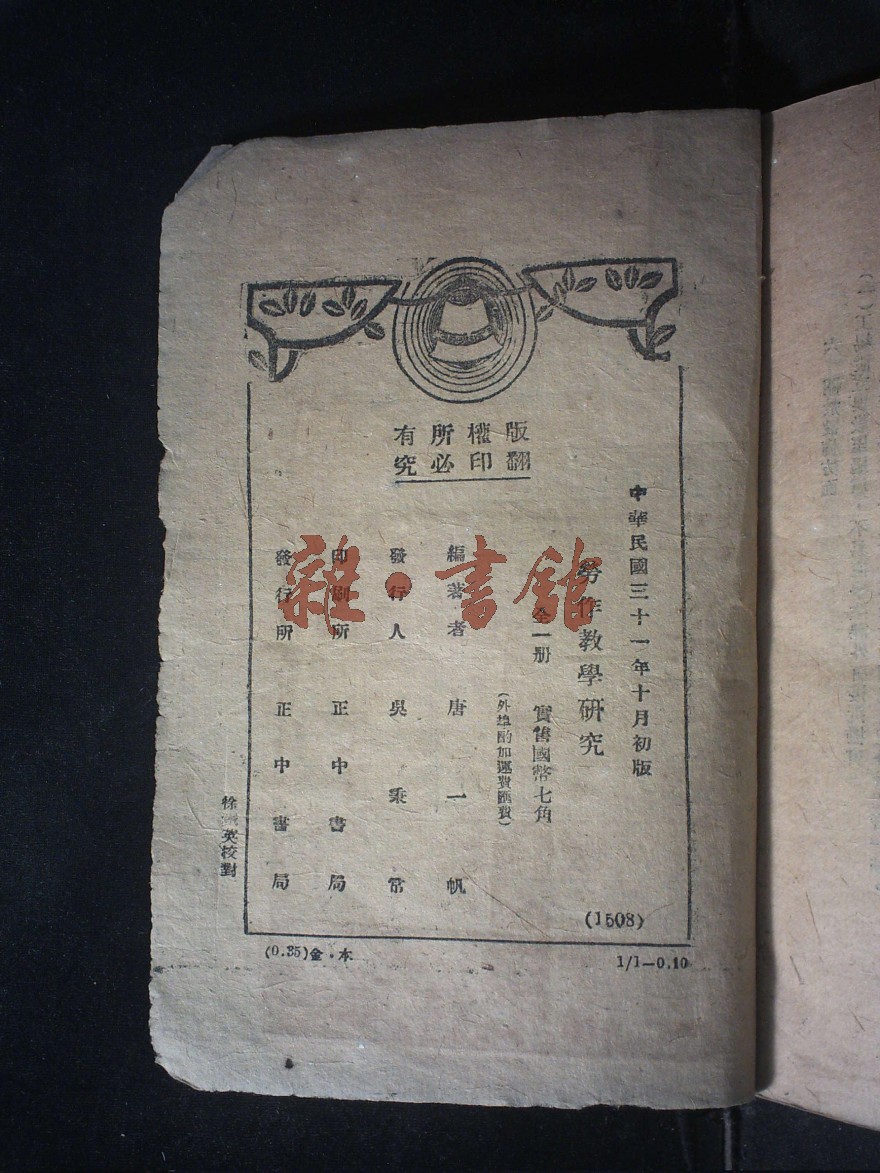 版權所有
翻印必究
中華民國三十一年十月初版
勞作教學研究
全一册 實售國幣七角
(外埠酌加運費匯費)
編著者 唐一帆
發行人 吳秉常
印刷所 正中書局
發行所 正中書局
(1508)
徐 英校對
(0.35)金·本
1/1—0.10
雜·書館